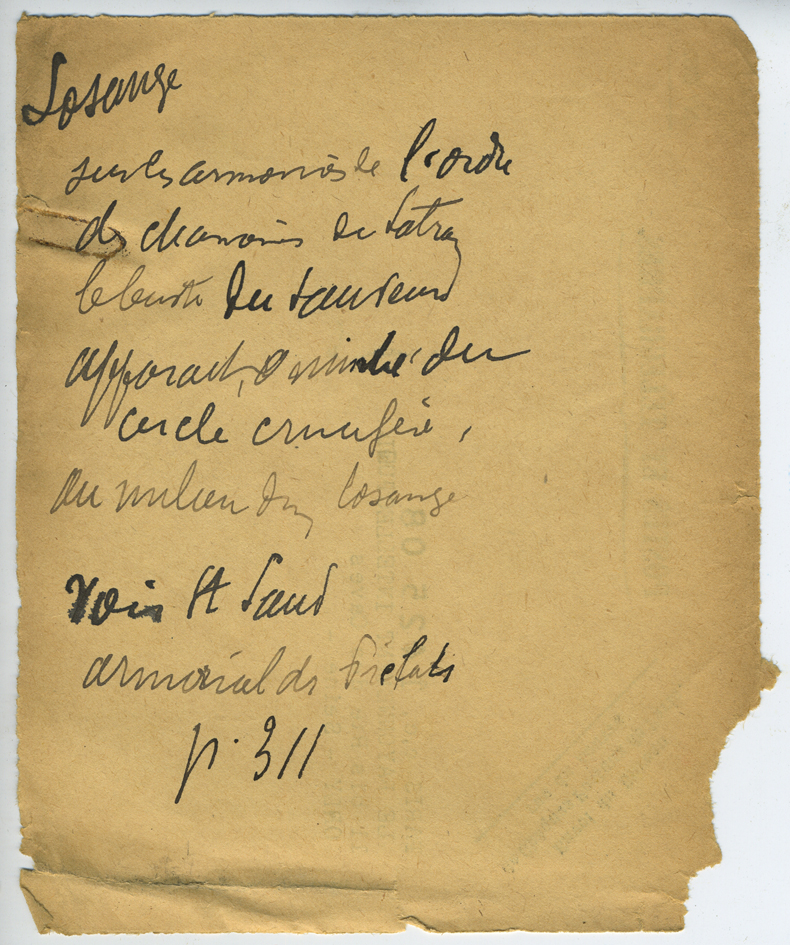 Losange
sur les armoiries de l'ordre
des chanoines de Latran
le buste du Sauveur
apparait, du
cercle crucifère,
au milieu d'un losange
voir St Saud
armorial des Prélats
p. 311